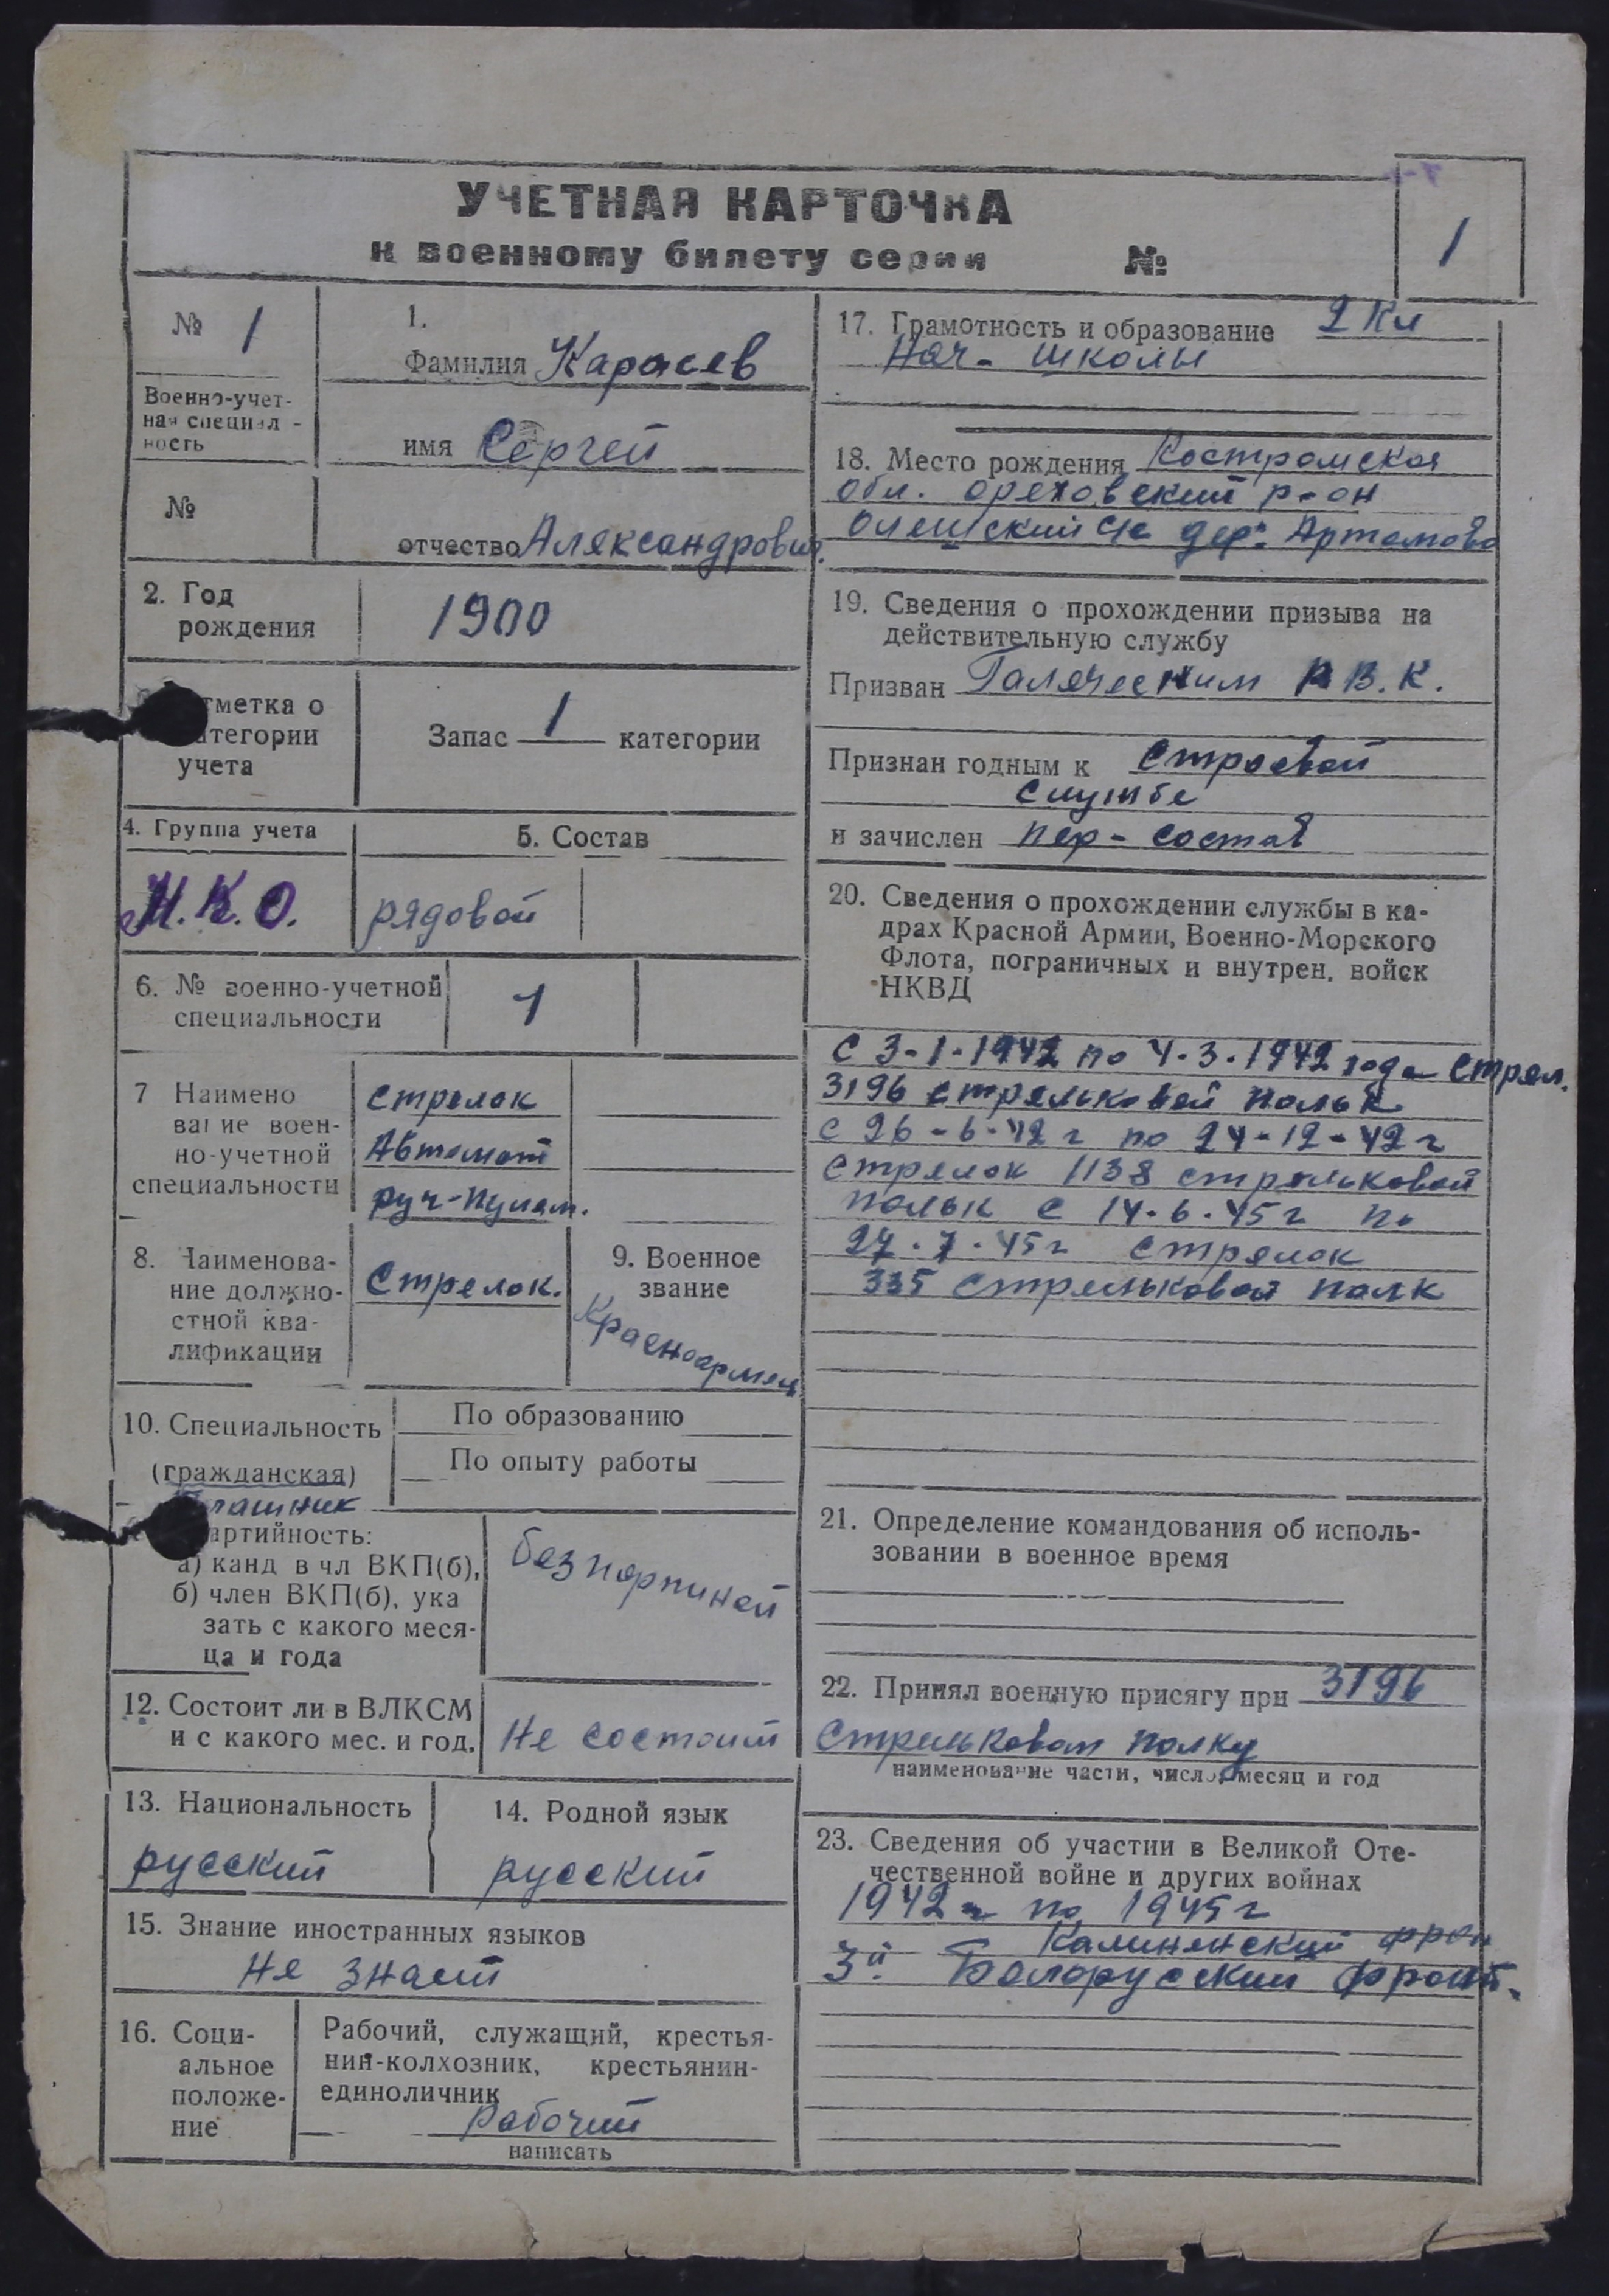 УЧЕТНАЯ КАРТОЧКА
к военному билету серии №
1
№ 1
Военно-учет-
ная специал-
ность
№
1.
Фамилия Карасев
имя Сергей
отчество Александрович.
2. Год
рождения
1900
тметка о
атегории
учета
Запас 1 категории
4. Группа учета
Н.К.О.
5. Состав
рядовой
6. № военно-учетной
специальности
1
7 Наимено
вание воен-
но-учетной
специальности
стрелок
Автомат
руч-пулем.
8. Наименова-
ние должно-
стной ква-
лификации
Стрелок.
9. Военное
звание
Красноармеец
10. Специальность
(гражданская)
По образованию
По опыту работы
артийность:
а) канд в чл ВКП(б),
б) член ВКП(б), ука
зать с какого меся-
ца и года
безпартиной
12. Состоит ли в ВЛКСМ
и с какого мес. и год.
Не состоит
13. Национальность
русский
14. Родной язык
русский
15. Знание иностранных языков
Не знает
16. Соци-
альное
положе-
ние
Рабочий, служащий, крестья-
нин-колхозник, крестьянин-
единоличник
рабочий
написать
17. Грамотность и образование 2 Кл
Нач- школы
18. Место рождения Костромская
обл. ореховский р-он
с/с дер. Артемово
19. Сведения о прохождении призыва на
действительную службу
Призван Галическим Р.В.К.
Признан годным к строевой
службе
и зачислен пер-состав
20. Сведения о прохождении службы в ка-
драх Красной Армии, Военно-Морского
Флота, пограничных и внутрен. войск
НКВД
С 3-1-1942 по 4.3.1942 года Стрел.
3196 стрельковой польк
с 26-6-42 г по 24-12-42 г
Стрелок 1138 стрельковой
польк с 14.6.45 г по
27.7.45 г стрелок
335 стрельковой полк
21. Определение командования об исполь-
зовании в военное время
22. Принял военную присягу при 3196
Стрельковом полку
наименование части, число, месяц и год
23. Сведения об участии в Великой Оте-
чественной войне и других войнах
1942 г по 1945 г
Калиненский фрон
3й Белорусский фронт.